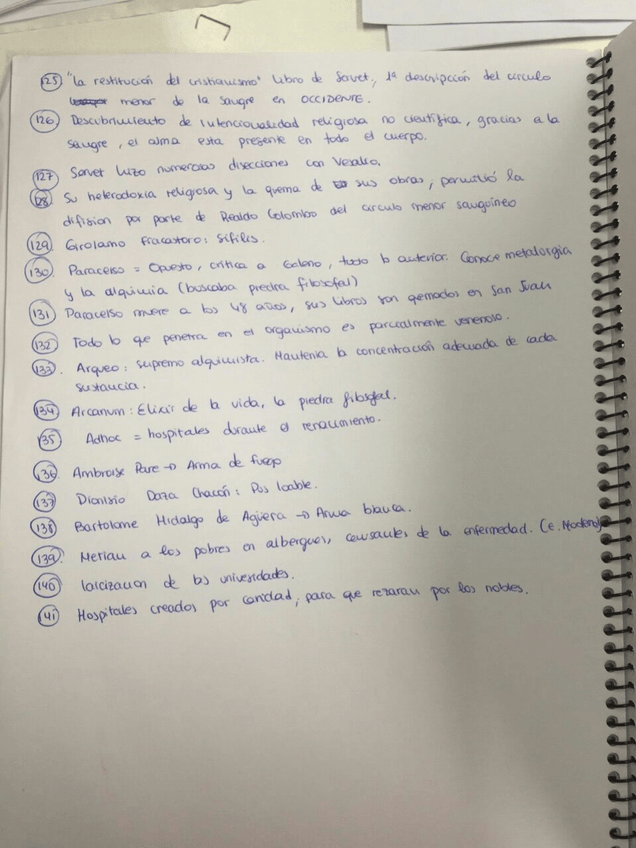 125 "La restitución del cristianismo" libro de Servet, 1ª descripción del círculo
menor de la sangre en OCCIDENTE.
126 Descubrimiento de intencionalidad religiosa no científica, gracias a la
sangre, el alma esta presente en todo el cuerpo.
127 Servet hizo numerosas disecciones con Vesalio.
128 Su heterodoxia religiosa y la quema de sus obras, permitió la
difision por parte de Realdo Colombo del circulo menor sanguíneo
129 Girolamo Fracastoro: Sífilis.
130 Paracelso = Opuesto, critica a Galeno, todo lo anterior. Conoce metalorgia
y la alquimia (buscaba piedra filosofal)
131 Paracelso muere a los 48 años, sus libros son quemados en San Juan
132 Todo lo que penetra en el organismo es parcialmente venenoso.
133. Arqueo: supremo alquimista. Mantenia la concentración adecuada de cada
sustancia.
134 Arcanum: Elixir de la vida, la piedra filosofal.
135 Adhoc = hospitales durante el renacimiento.
136 Ambroise Pare → Arma de fuego
137 Dionisio Daza Chacón: Pus loable.
138 Bartolome Hidalgo de Agüera → Arma blanca.
139. Metian a los pobres en albergues, causantes de la enfermedad. (e. Moderna)
140 laicizacion de las universidades.
141 Hospitales creados por caridad, para que rezaran por los nobles.